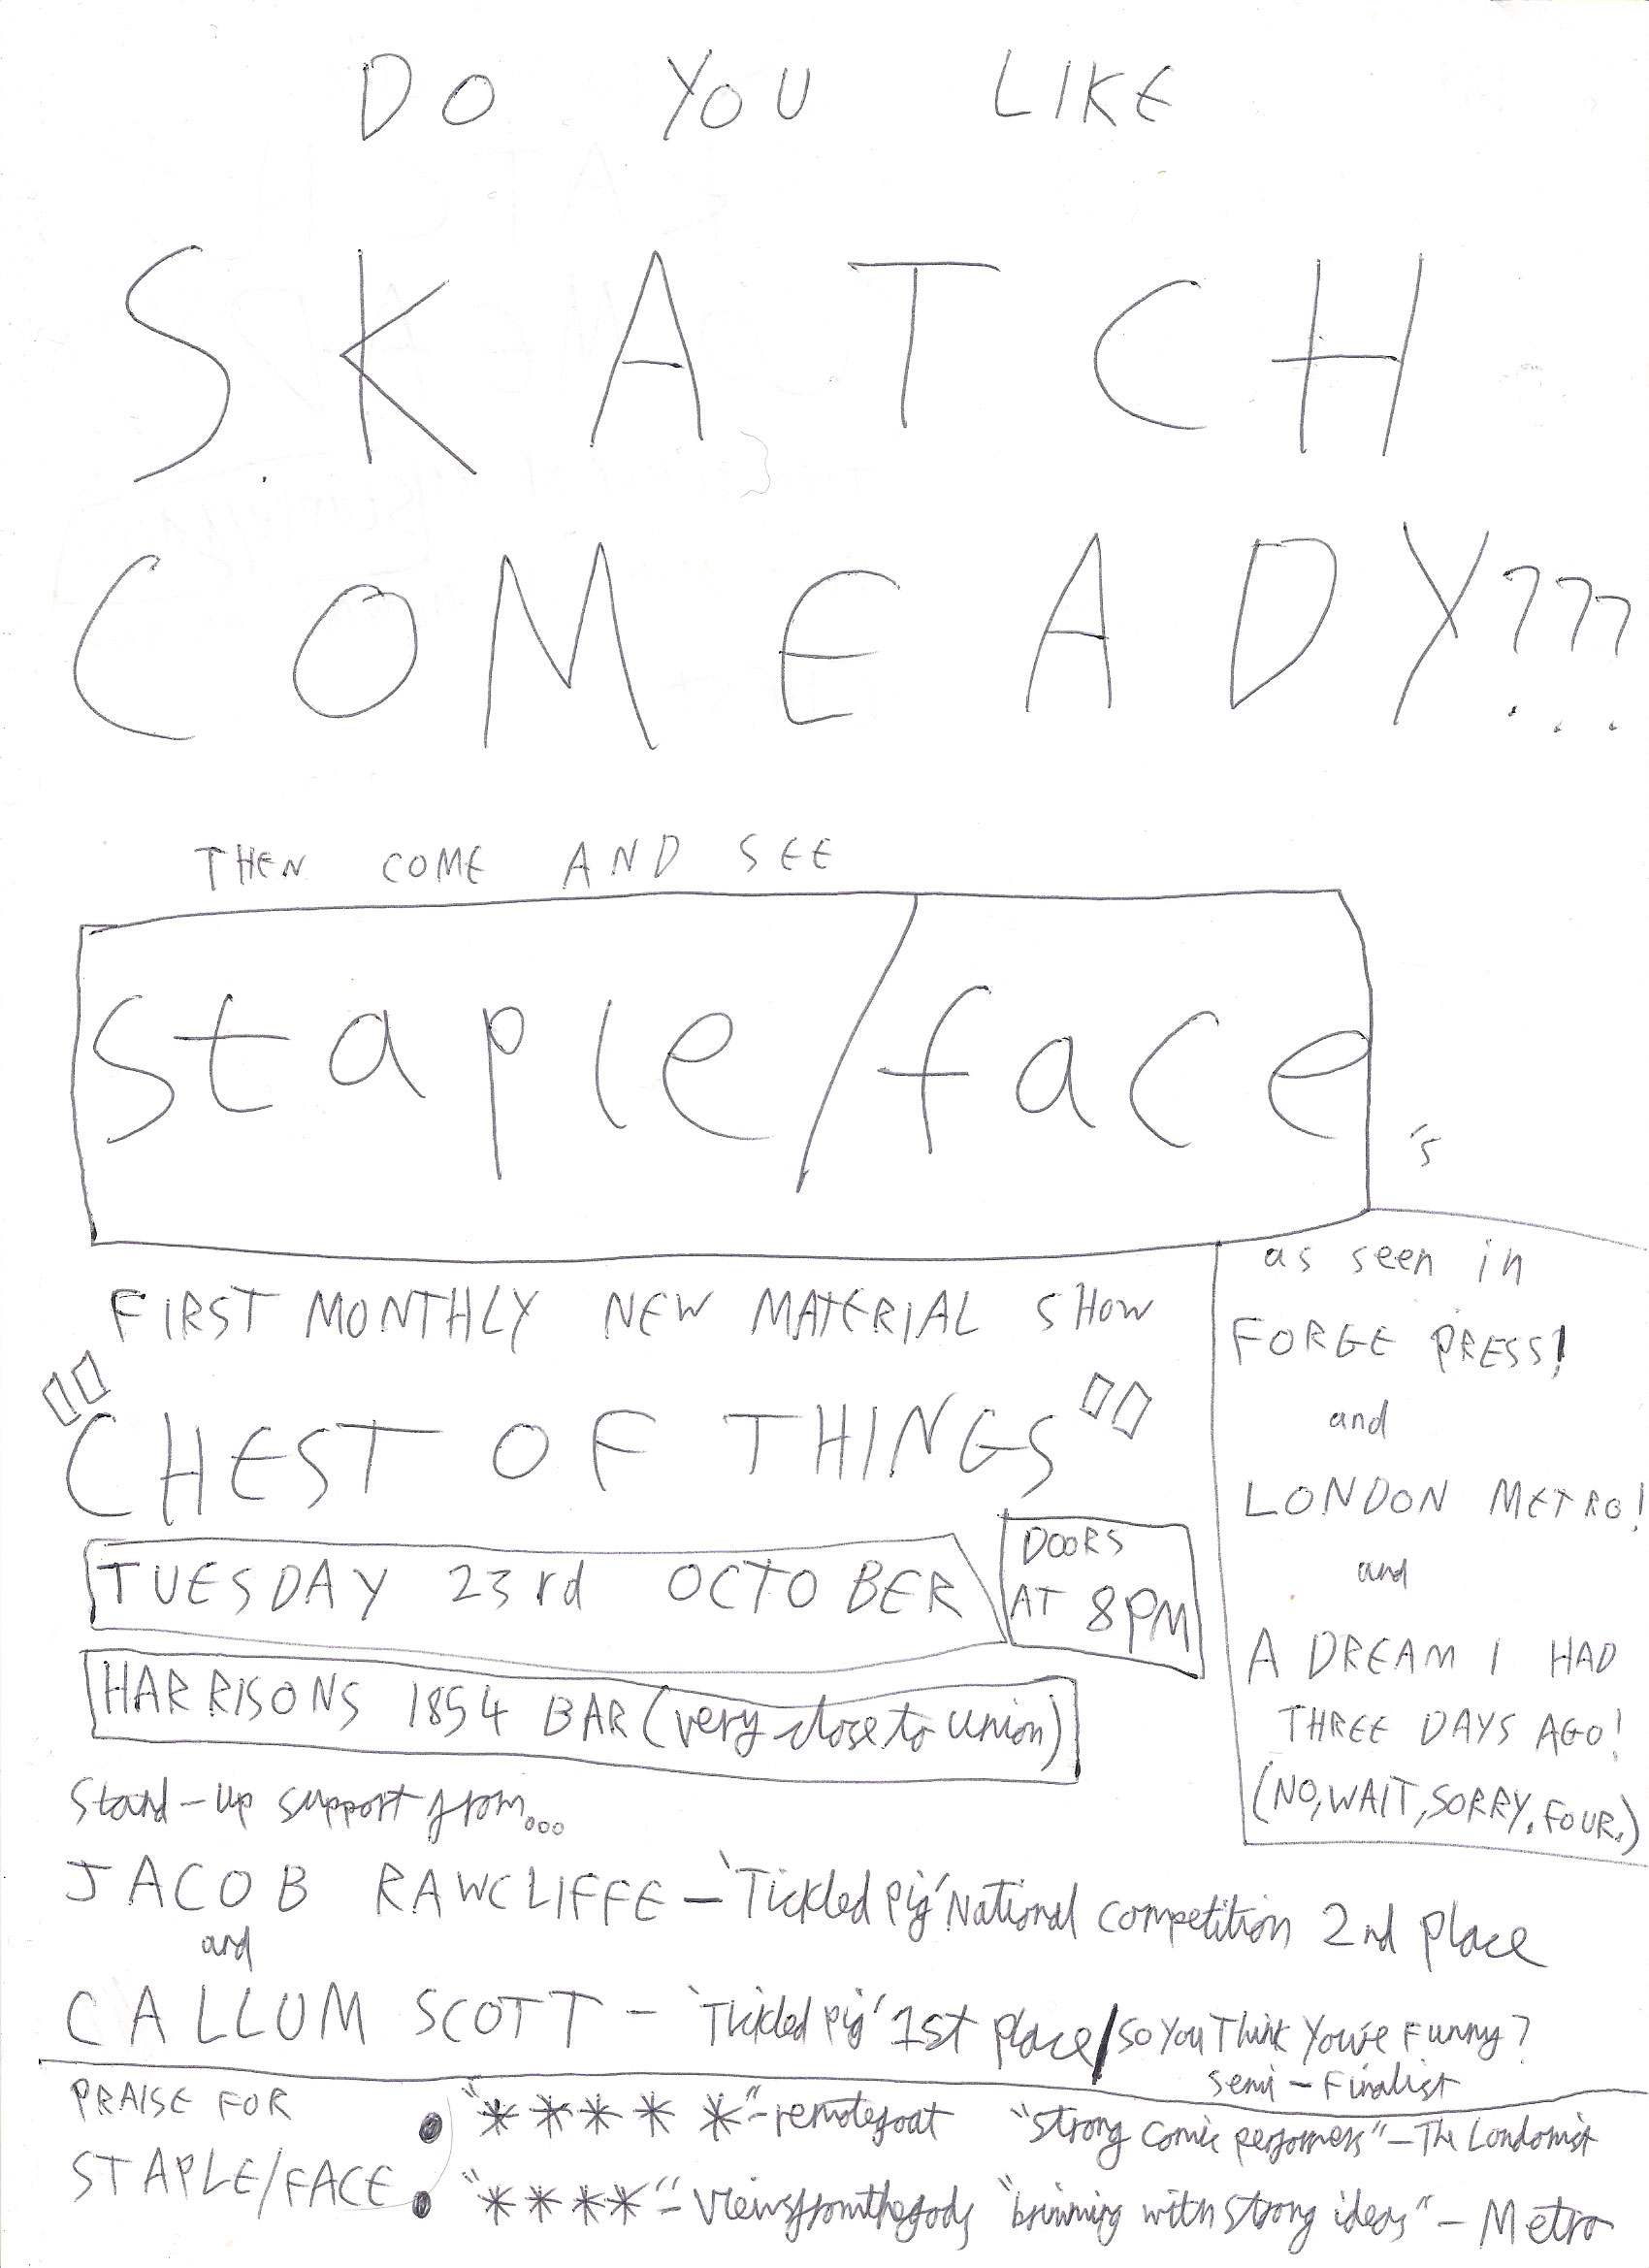 DO YOU LIKE
SKATCH
COMEADY???
THEN COME AND SEE
staple/face's
FIRST MONTHLY NEW MATERIAL SHOW
"CHEST OF THINGS"
TUESDAY 23rd OCTOBER
DOORS
AT 8PM
HARRISONS 1854 BAR (very close to union)
as seen in
FORGE PRESS!
and
LONDON METRO!
and
A DREAM I HAD
THREE DAYS AGO!
(NO, WAIT, SORRY. FOUR.)
Stand-up support from...
JACOB RAWCLIFFE - 'Tickled Pig' National Competition 2nd place
and
CALLUM SCOTT - 'Tickled Pig' 1st place/So You Think You're Funny?
Semi-Finalist
PRAISE FOR
STAPLE/FACE:
"*****" - remotegoat "strong comic performers" - The Londonist
"****" - Viewsfromthegods "brimming with strong ideas" - Metro